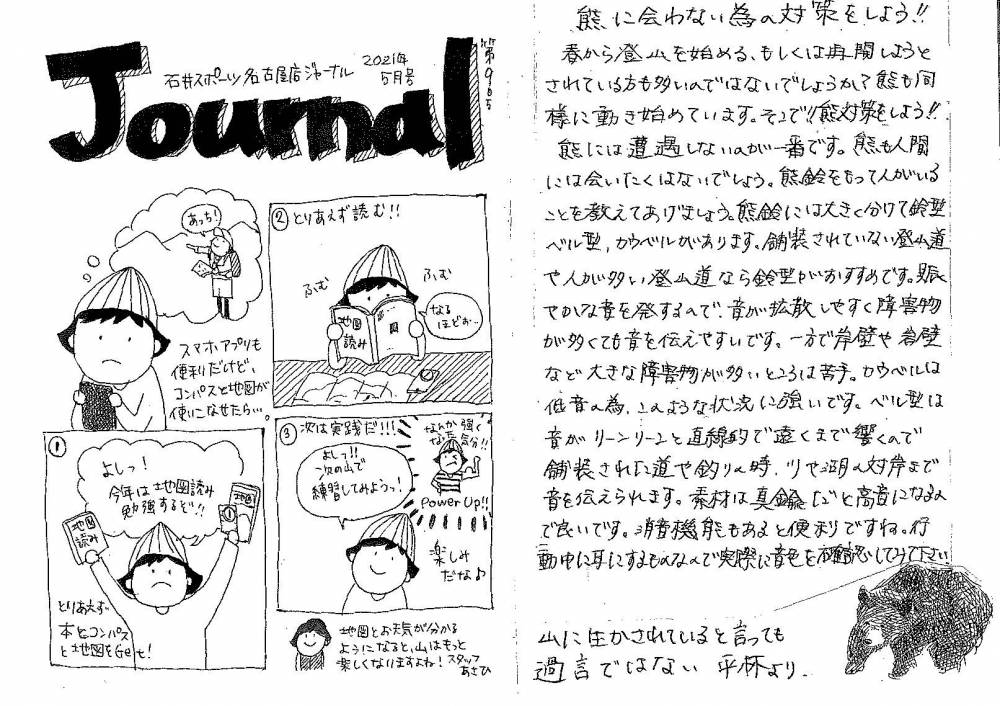 石井スポーツ名古屋店ジャーナル
2021年
5月号
Journal
あっち!
スマホアプリも
便利だけど、
コンパスと地図が
使いこなせたら…。
①
よしっ!
今年は地図読み
勉強するぞ!!
地図
読み
地図
とりあえず
本とコンパス
と地図をGet!
②とりあえず読む!!
ふむ
ふむ
なる
ほどぉ〜
地図
読み
③次は実践だ!!!
よしっ!!
次の山で
練習してみようっ!
なんか強く
なった気分!!
Power Up!!
楽しみ
だな♪
地図とお天気が分かる
ようになると、山はもっと
楽しくなりますよね! スタッフ
あさひ
熊に会わない為の対策をしよう!!
春から登山を始める、もしくは再開しようと
されている方も多いのではないでしょうか?熊も同
様に動き始めています。そこで!!熊対策をしよう!!
熊には遭遇しないのが一番です。熊も人間
には会いたくはないでしょう。熊鈴をもって人がいる
ことを教えてあげましょう。熊鈴には大きく分けて鈴型
ベル型、カウベルがあります。舗装されていない登山道
や人が多い登山道なら鈴型がおすすめです。賑
やかな音を発するので、音が拡散しやすく障害物
が多くても音を伝えやすいです。一方で岸壁や岩壁
など大きな障害物が多いところは苦手。カウベルは
低音の為、このような状況に強いです。ベル型は
音がリーンリーンと直線的で遠くまで響くので
舗装された道や釣りの時、川や湖の対岸まで
音を伝えられます。素材は真鍮などと高音になるの
で良いです。消音機能もあると便利ですね。行
動中に耳にするものなので実際に音色を確認してみてください
山に生かされていると言っても
過言ではない 平林より.